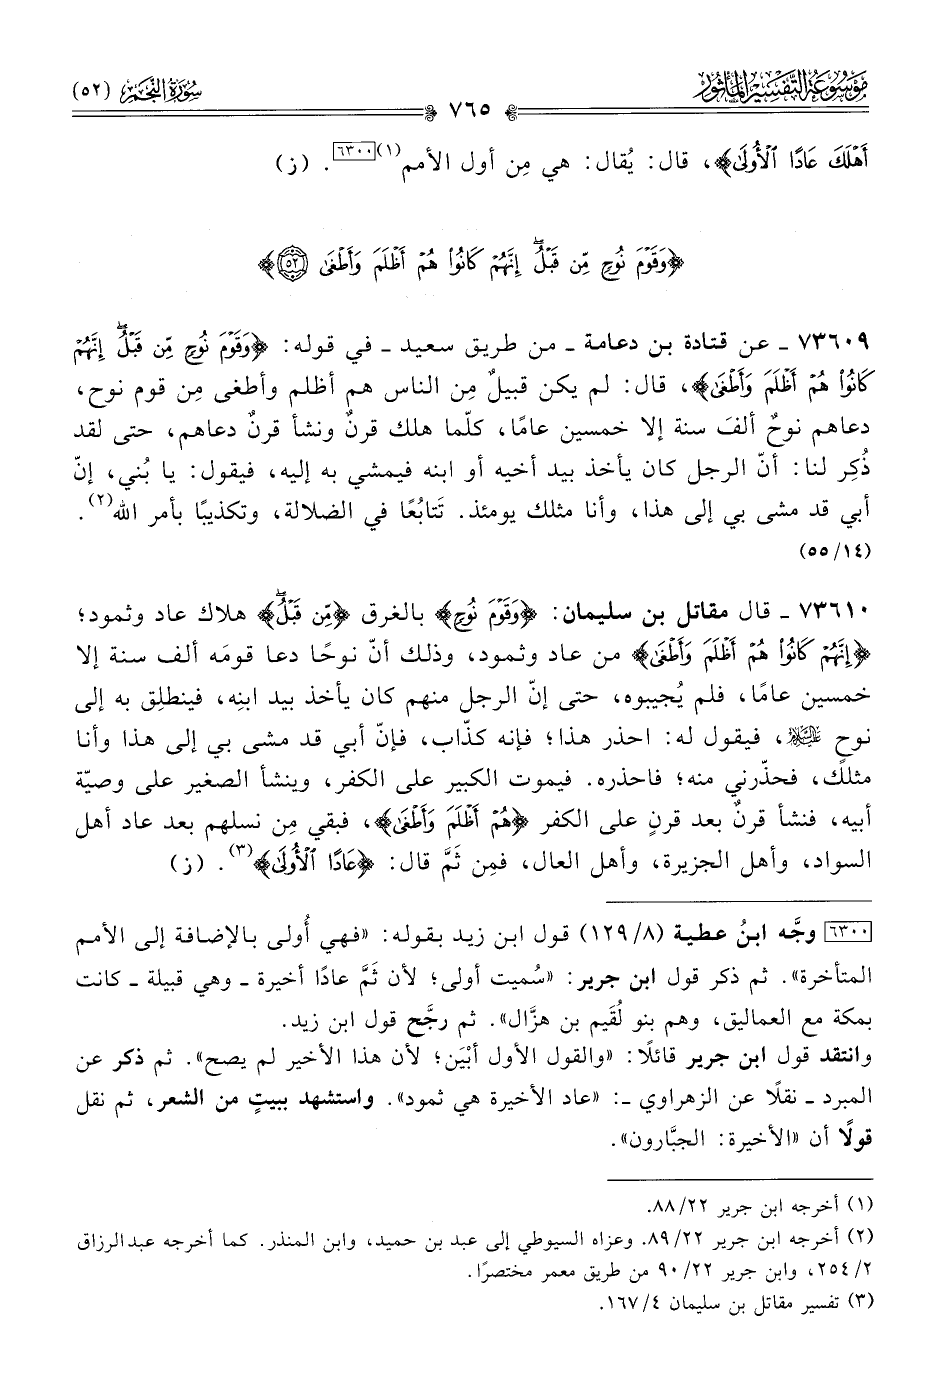 مَوْسُوعَة التَّفْسِير المَأْثُور
سُورَةُ النَّجْمِ (٥٢)
٧٦٥
أَهْلَكَ عَادًا ٱلْأُولَىٰ﴾، قال: يُقال: هي مِن أول الأمم(١)[٦٣٠٠]. (ز)
﴿وَقَوْمَ نُوحٍ مِّن قَبْلُۖ إِنَّهُمْ كَانُوا۟ هُمْ أَظْلَمَ وَأَطْغَىٰ ٥٢﴾
٧٣٦٠٩ ـ عن قتادة بن دعامة ـ من طريق سعيد ـ في قوله: ﴿وَقَوْمَ نُوحٍ مِّن قَبْلُۖ إِنَّهُمْ
كَانُوا۟ هُمْ أَظْلَمَ وَأَطْغَىٰ﴾، قال: لم يكن قبيلٌ مِن الناس هم أظلم وأطغى مِن قوم نوح،
دعاهم نوحٌ ألفَ سنة إلا خمسين عامًا، كلّما هلك قرنٌ ونشأ قرنٌ دعاهم، حتى لقد
ذُكِر لنا: أنّ الرجل كان يأخذ بيد أخيه أو ابنه فيمشي به إليه، فيقول: يا بُني، إنّ
أبي قد مشى بي إلى هذا، وأنا مثلك يومئذ. تَتابُعًا في الضلالة، وتكذيبًا بأمر الله(٢).
(١٤/ ٥٥)
٧٣٦١٠ ـ قال مقاتل بن سليمان: ﴿وَقَوْمَ نُوحٍ﴾ بالغرق ﴿مِّن قَبْلُۖ﴾ هلاك عاد وثمود؛
﴿إِنَّهُمْ كَانُوا۟ هُمْ أَظْلَمَ وَأَطْغَىٰ﴾ من عاد وثمود، وذلك أنّ نوحًا دعا قومَه ألف سنة إلا
خمسين عامًا، فلم يُجيبوه، حتى إنّ الرجل منهم كان يأخذ بيد ابنِه، فينطلِق به إلى
نوح عليه السلام، فيقول له: احذر هذا؛ فإنه كذّاب، فإنّ أبي قد مشى بي إلى هذا وأنا
مثلك، فحذّرني منه؛ فاحذره. فيموت الكبير على الكفر، وينشأ الصغير على وصيّة
أبيه، فنشأ قرنٌ بعد قرنٍ على الكفر ﴿هُمْ أَظْلَمَ وَأَطْغَىٰ﴾، فبقي مِن نسلهم بعد عاد أهل
السواد، وأهل الجزيرة، وأهل العال، فمِن ثَمَّ قال: ﴿عَادًا ٱلْأُولَىٰ﴾(٣). (ز)
[٦٣٠٠] وجَّه ابنُ عطية (٨/ ١٢٩) قول ابن زيد بقوله: «فهي أُولى بالإضافة إلى الأمم
المتأخرة». ثم ذكر قول ابن جرير: «سُميت أولى؛ لأن ثَمَّ عادًا أخيرة ـ وهي قبيلة ـ كانت
بمكة مع العماليق، وهم بنو لُقَيم بن هزَّال». ثم رجَّح قول ابن زيد.
وانتقد قول ابن جرير قائلًا: «والقول الأول أبْيَن؛ لأن هذا الأخير لم يصح». ثم ذكر عن
المبرد ـ نقلًا عن الزهراوي ـ: «عاد الأخيرة هي ثمود». واستشهد ببيتٍ من الشعر، ثم نقل
قولًا أن «الأخيرة: الجبَّارون».
(١) أخرجه ابن جرير ٢٢/ ٨٨.
(٢) أخرجه ابن جرير ٢٢/ ٨٩. وعزاه السيوطي إلى عبد بن حميد، وابن المنذر. كما أخرجه عبدالرزاق
٢/ ٢٥٤، وابن جرير ٢٢/ ٩٠ من طريق معمر مختصرًا.
(٣) تفسير مقاتل بن سليمان ٤/ ١٦٧.